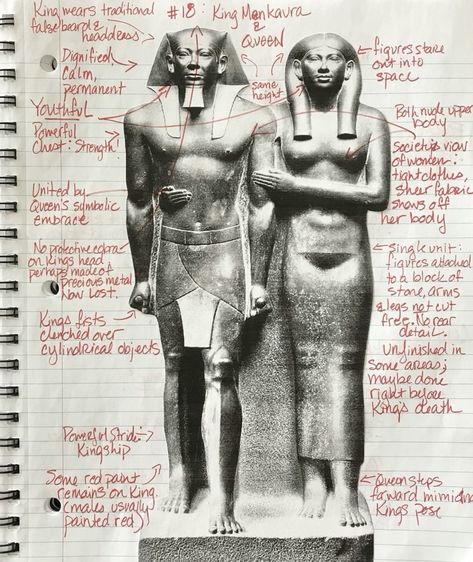 #18: King Menkaura
&
QUEEN
King wears traditional
false beard &
headdress
Dignified,
Calm,
permanent
Youthful
Powerful
Chest: Strength!
United by
Queen's symbolic
embrace
No protective cobra
on King's head,
perhaps made of
precious metal
Now Lost.
King's fists
clenched over
cylindrical objects
Powerful Stride:
Kingship
Some red paint
remains on King.
(males usually
painted red)
same
height
figures stare
out into
space
Both nude upper
body
Societies view
of women:
tight clothes,
sheer fabric
shows off
her body
Single unit:
figures attached
to a block of
stone, arms
& legs not cut
free. No rear
detail.
Unfinished in
some areas;
maybe done
right before
King's death
Queen steps
forward mimicing
King's pose